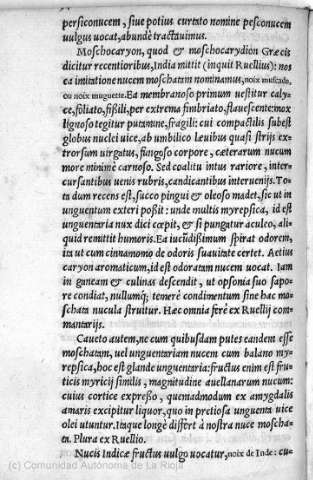 persiconucem, siue potius curtato nomine pesconucem
uulgus uocat, abundè tractauimus.
Moschocaryon, quod & moschocarydion Græcis
dicitur recentioribus, India mittit (inquit Ruellius): nos
ea imitatione nucem moschatam nominamus, noix muscade,
ou noix muguette. Ea membranoso primum uestitur caly-
ce, foliato, fissili, per extrema fimbriato, flauescente: mox
lignoso tegitur putamine, fragili: cui compactilis subest
globus nuclei uice, ab umbilico leuibus quasi strijs ex-
trorsum uirgatus, fungoso corpore, cæterarum nucum
more minimè carnoso. Sed coalitu intus rariore, inter-
cursantibus uenis rubris, candicantibus interuenijs. To-
ta dum recens est, succo pingui & oleoso madet, sic ut in
unguentum exteri possit: unde multis myrepsica, id est
unguentaria nux dici cœpit, & si pungatur aculeo, ali-
quid remittit humoris. Ea iucūdißimum spirat odorem,
ita ut cum cinnamomo de odoris suauitate certet. Aetius
caryon aromaticum, id est odoratam nucem uocat. Iam
in ganeam & culinas descendit, ut opsonia suo sapo-
re condiat, nullumq; temerè condimentum sine hac mo-
schata nucula struitur. Hæc omnia ferè ex Ruellij com-
mentarijs.
Caueto autem, ne cum quibusdam putes eandem esse
moschatam, uel unguentariam nucem cum balano my-
repsica, hoc est glande unguentaria: fructus enim est fru-
ticis myricij similis, magnitudine auellanarum nucum:
cuius cortice expresso, quemadmodum ex amygdalis
amaris excipitur liquor, quo in pretiosa unguenta uice
olei utuntur. itaque longè differt à nostra nuce moscha-
ta. Plura ex Ruellio.
Nucis Indicæ fructus uulgo uocatur, noix de Inde: cu-
(c) Comunidad Autónoma de La Rioja